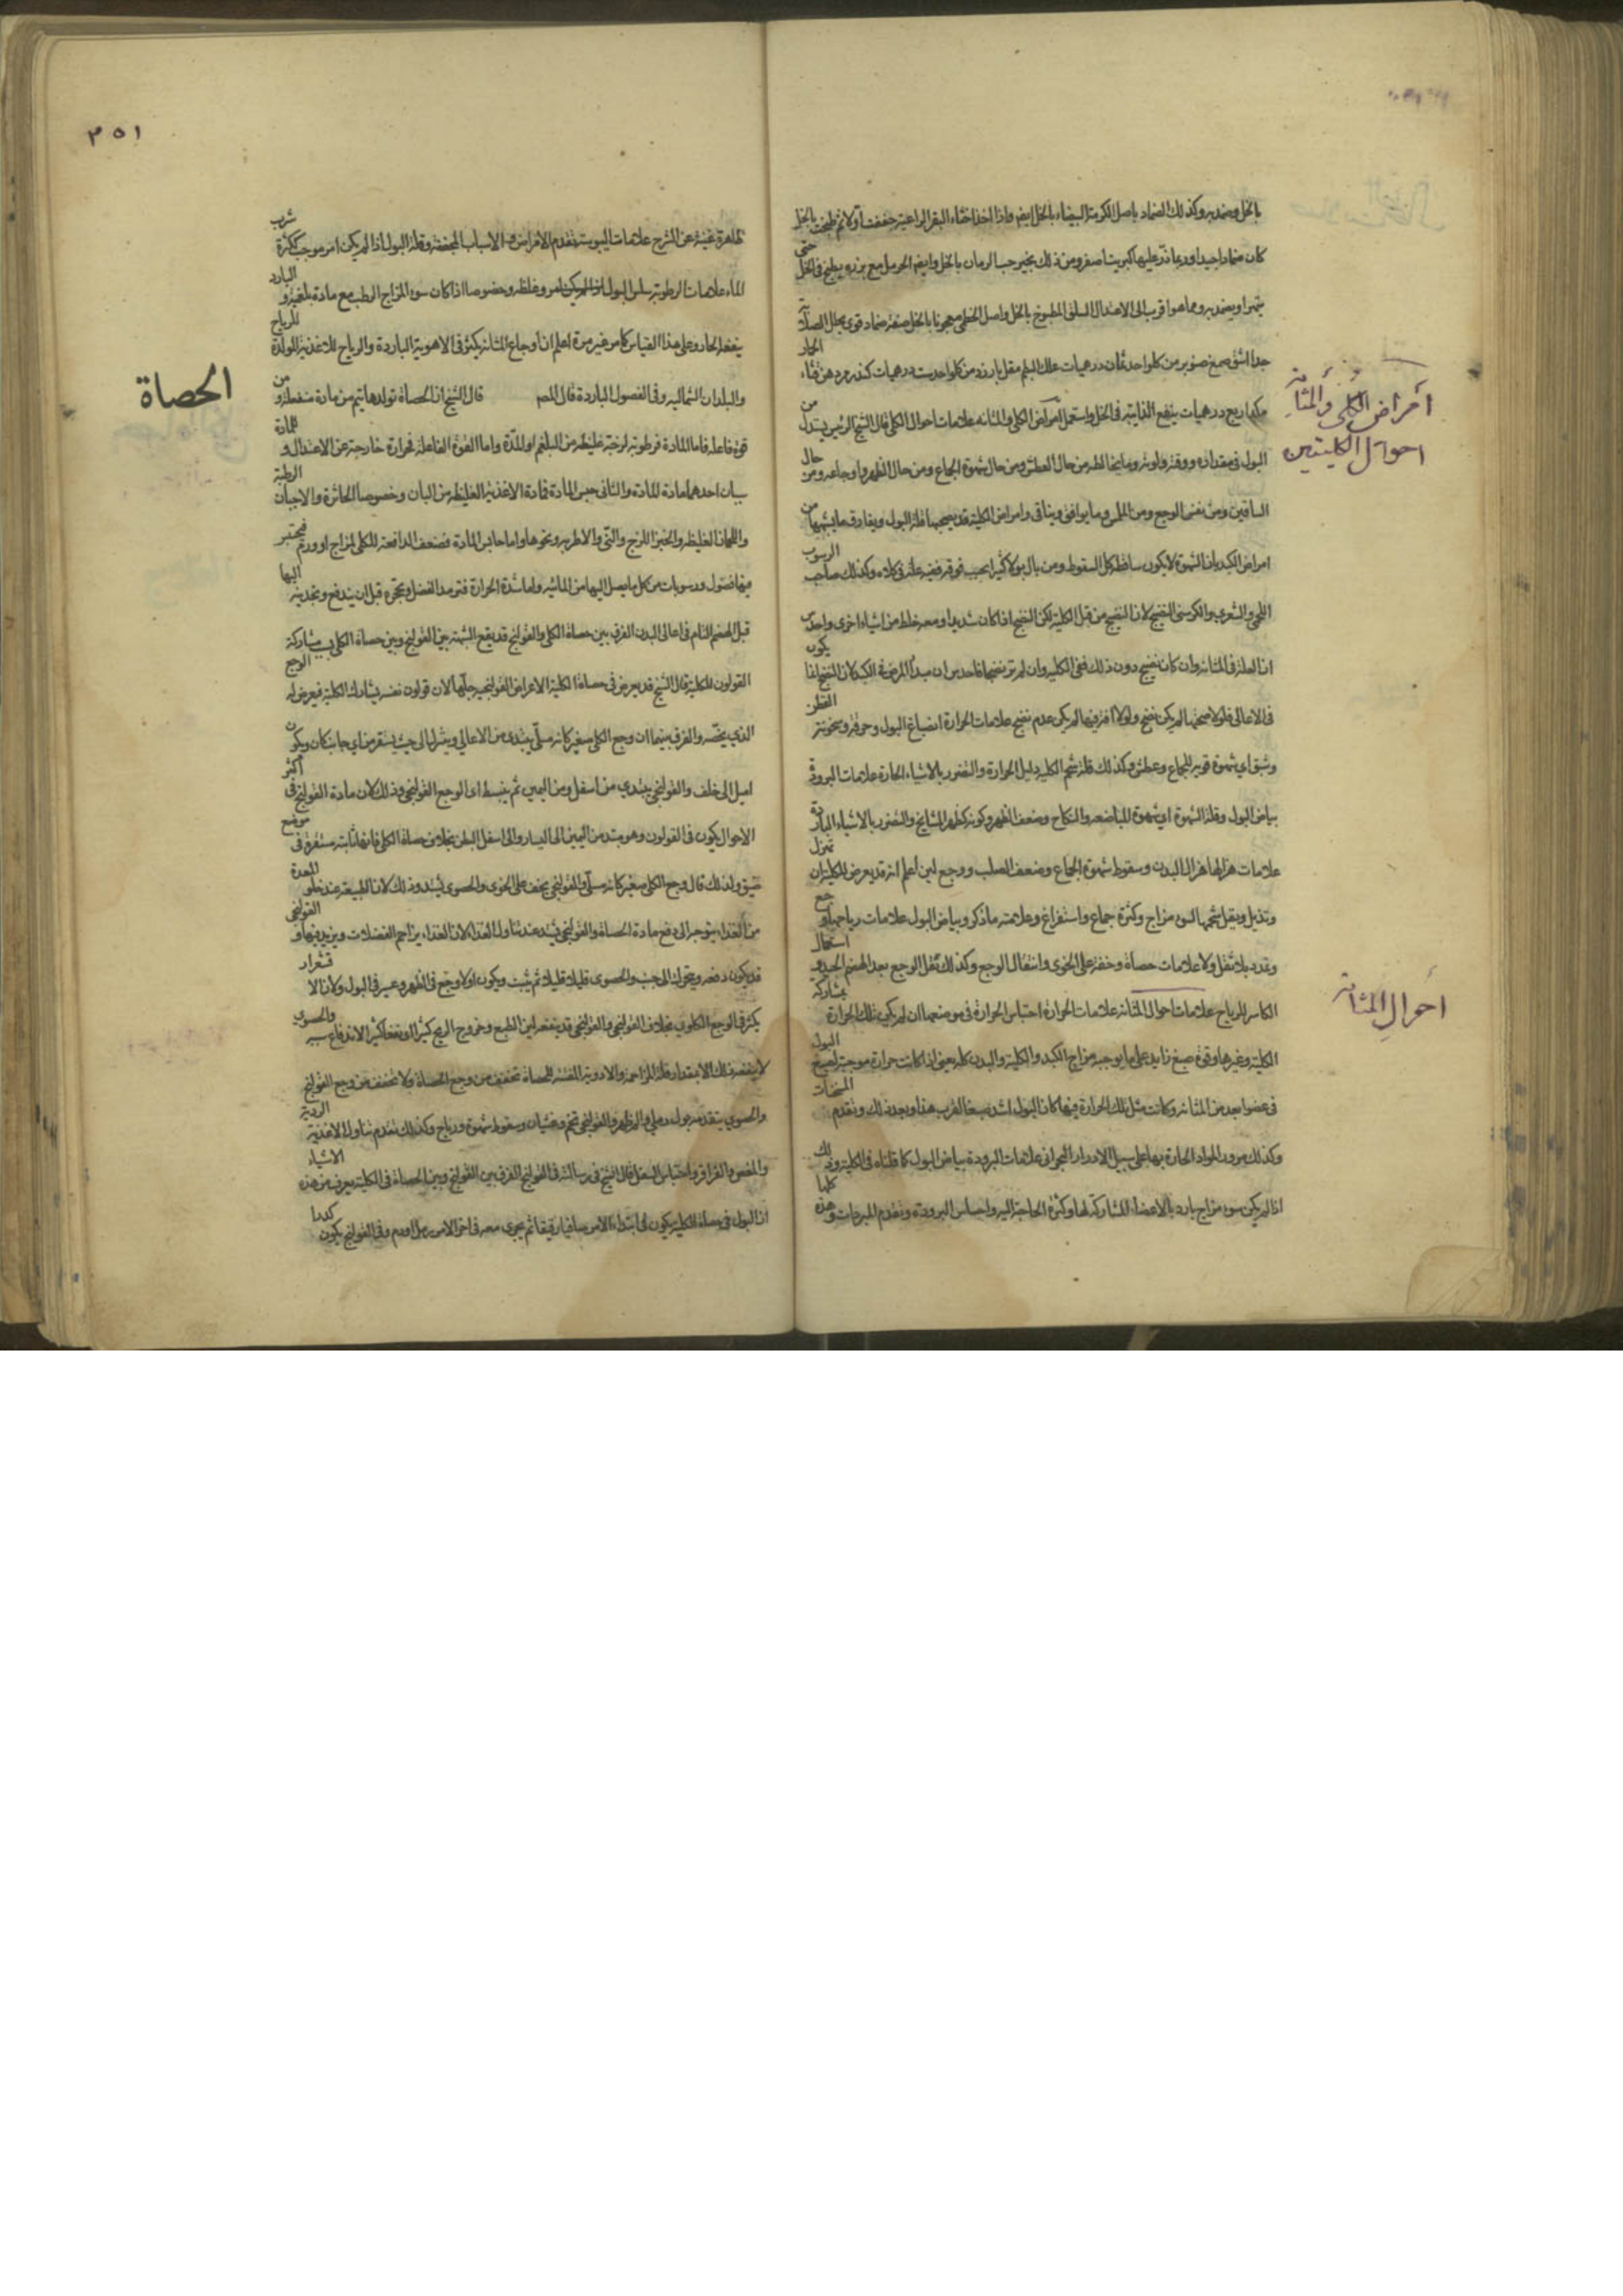 بالخل ويضمد به وكذلك الضماد باصل الكرمة البيضاء بالخل ايضا واذا اخذ اخثاء البقر الراعية جففت اولا ثم طبخت بالخل
كان ضمادا جيدا وربما ذر عليها كبريت اصفر ومن ذلك يخبر حب الرمان بالخل وايضا الحرمل مع بزره يطبخ في الخل حتى
يتهرا ويضمد به ومما هو اقرب الى الاعتدال السلق المطبوخ بالخل واصل الخطمي معجونا بالخل صفة ضماد قوي يحلل الصلابة
جدا اشق صمغ صنوبر من كل واحد ثمان درخميات علك البطم مقل بارزد من كل واحد ست درخميات كندر مر دهن قثاء الحمار
اربع درخميات ينقع الذايبة في الخل واستعمل امراض الكلى والمثانه علامات احوال الكلى قال الشيخ الرئيس يستدل من
البول في مقداره ورقته ولونه وما يخالطه من حال العطش ومن حال شهوة الجماع ومن حال الظهر واوجاعه ومن حال
الساقين ومن نفس الوجع ومن الملمس وما يوافق وينافي وامراض الكلية قد يصحبها قلة البول ويفارق ما يشبهها من
امراض الكبد بان الشهوة لا يكون ساقطة كل السقوط ومن بال بولا كثيرا بحبب فوقه ففيه علة في كلاه وكذلك صاحب الرسوب
اللحمي والشعري والكرسني النضيج لان النضيج من قبل الكلية لكن النضج اذا كان شديدا ومعه خلط من اشياء اخرى واحدس
ان العلة في المثانه وان كان نضيج دون ذلك ففي الكليه وان لم تر نضجا فاحدس ان مبدأ المرض في الكبد لان النضج انما يكون
في الاعالي فلولا صحتها لم يكن نضج ولولا افة فيها لم يكن عدم نضج علامات الحرارة انصباغ البول وحرقة وسخونة القطن
وشبق اي شهوة قوية للجماع وعطش وكذلك قلة شحم الكلية دليل الحرارة والتضرر بالاشياء الحارة علامات البرودة
بياض البول وقلة الشهوة اي شهوة المباضعه والنكاح وضعف الظهر وكونه كظهر المشايخ والتضرر بالاشياء الباردة
علامات هزالها هزال البدن وسقوط شهوة الجماع وضعف الصلب ووجع لين اعلم انه قد يعرض للكلية ان تهزل
وتذبل ويقل شحمها لسوء مزاج وكثرة جماع واستفراغ وعلامته ما ذكر وبياض البول علامات رياحها وجع
وتمدد بلا ثقل ولا علامات حصاة وخفة على الخوى وانتقال الوجع وكذلك ثقل الوجع بعد الهضم الجيد و استعمال
الكاسر للرياح علامات احوال المثانة علامات الحرارة احتباس الحرارة في موضعها ان لم يكن تلك الحرارة بمشاركة
الكلية وغيرها وقوة صبغ زايد على ما يوجبه مزاج الكبد والكلية والبدن كله يعني اذا كانت حرارة موجبة لصبغ البول
في عضو ابعد من المثانه وكانت مثل تلك الحرارة فيها كان البول اشد صبغا لقرب هذا وبعد ذلك وتقدم المسخنات
وكذلك مرور المواد الحارة بها على سبيل الادرار البحراني علامات البرودة بياض البول كما قلناه في الكلية وذلك
اذا لم يكن سوء مزاج بارد بالاعضاء المشاركة لها وكثرة الحاجة اليه واحساس البرودة وتقدم المبردات وهذه كلها
أمراض الكلى والمثانة
احوال الكليتين
أحوال المثانة
٣٥١
ظاهرة غنية عن الشرح علامات اليبوسة تقدم الامراض والاسباب المجففة وقلة البول اذا لم يكن امر موجب كثرة شرب
الماء علامات الرطوبة سلس البول وغلظه وخصوصا اذا كان سوء المزاج الرطب مع مادة بلغمية و البارد
ينفعه الحار وعلى هذا القياس كما مر غير مرة اعلم ان اوجاع المثانة يكثر في الاهوية الباردة والرياح للاغذية المولدة للرياح
والبلدان الشمالية وفي الفصول الباردة قال المص قال الشيخ ان الحصاة تولدها يتم من مادة منفعلة و من
قوة فاعلة فاما المادة فرطوبة لزجة غليظة من البلغم او المدة واما القوة الفاعلة فحرارة خارجة عن الاعتدال و للمادة
سببان احدهما مادة للمادة والثاني حبس المادة فمادة الاغذية الغليظة من البان وخصوصا الخاثرة والاجبان الرطبة
واللحمان الغليظة والخبز اللزج والني والاطرية ونحوها واما حابس المادة فضعف الدافعة للكلى لمزاج او ورم فيحتبس
فيها فضول ورسوبات من كل ما يصل اليها من المائية واما شدة الحرارة فترمد الفضل وتحجره قبل ان يندفع وتجذبه اليها
قبل الهضم التام في اعالي البدن الفرق بين حصاة الكلى والقولنج قد يقع الشبهة بين القولنج وبين حصاة الكلى بسبب مشاركة
القولون للكلية قال الشيخ قد يعرض في حصاة الكلية الاعراض القولنجية جلها لان قولون نفسه يشارك الكلية فيعرض له الوجع
الذي يخصه والفرق بينهما ان وجع الكلى صغير كانه سلي يبتدي من الاعالي وينزل الى حيث يستقر من اي جانب كان ويكون
اميل الى خلف والقولنجي يبتدي من اسفل ومن اليمين ثم ينبسط اي الوجع القولنجي وذلك لان مادة القولنج في اكثر
الاحوال يكون في القولون وهو يمتد من اليمين الى اليسار والى اسفل البطن بخلاف حصاة الكلى فانها ثابتة مستقرة في موضع
ضيق ولذلك قال وجع الكلى صغير كانه سلي والقولنجي يخف على الخوى والحصوي يشتد وذلك لان الطبيعة عند خلو المعدة
من الغذاء يتوجه الى دفع مادة الحصاة والقولنجي يشتد عند تناول الغذاء لان الغذاء يزاحم الفضلات ويزيد فيها و القولنجي
قد يكون دفعة ويتحرك الى جنب والحصوي قليلا قليلا ثم يثبت ويكون اولا وجع في الظهر وعسر في البول ولان الا قشعرار
يكثر في الوجع الكلوي بخلاف القولنجي والقولنجي قد ينفعه لين الطبع وخروج الريح كثيرا لاندفاع سببه والحصوي
لا ينفعه ذلك الا بمقدار قلة المزاحمة والادوية المفتتة للحصاة تخفف من وجع الحصاة ولا تخفف من وجع القولنج
والحصوي يتقدمه بول رملي والقولنجي تخم وغثيان وسقوط شهوة ورياح وكذلك تقدم تناول الاغذية الردية
والمغص والقراقر واحتباس الثفل قال الشيخ في رسالته في القولنج الفرق بين القولنج وبين الحصاة في الكلية يعرف من هذه الاشياء
ان البول في حصاة الكلية يكون في ابتداء الامر صافيا رقيقا ثم يجري معه في اخر الامر رمل او دم وفي القولنج يكون كدرا
الحصاة